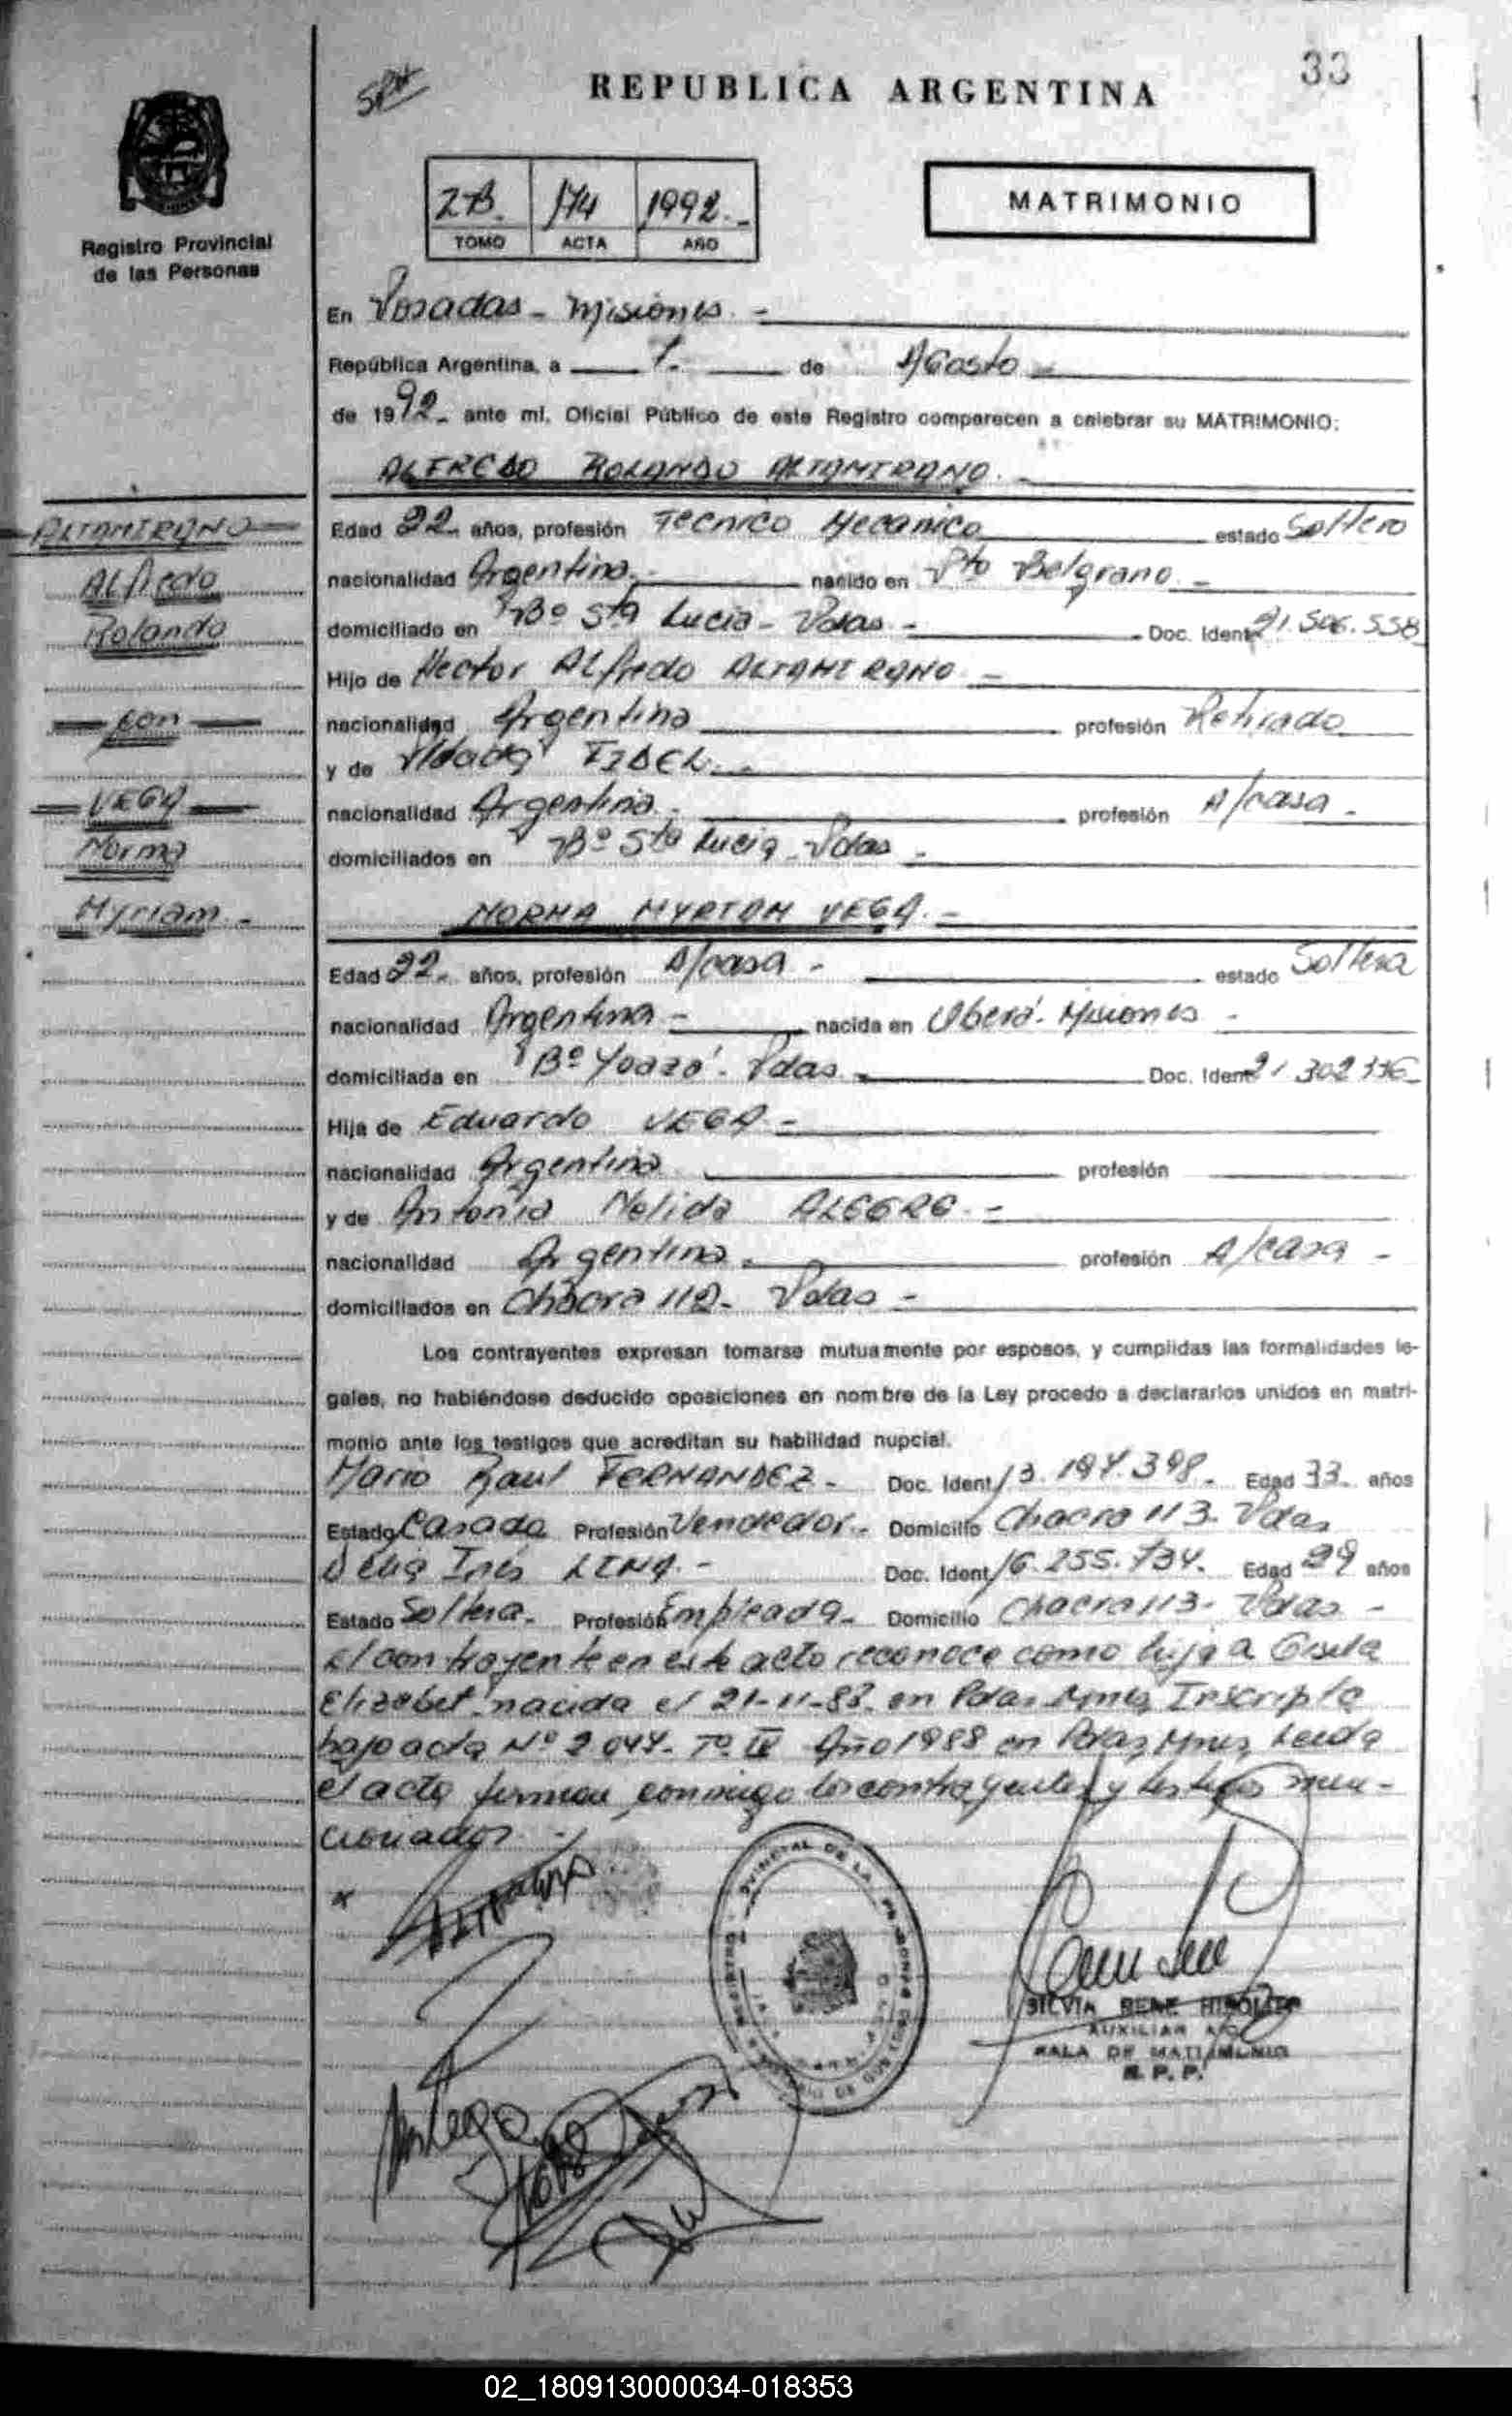 33
REPUBLICA ARGENTINA
MATRIMONIO
Registro Provincial
de las Personas
1992.-
TOMO ACTA AÑO
En Posadas - Misiones -
República Argentina, a 1. de Agosto
de 1992- ante mí, Oficial Público de este Registro comparecen a celebrar su MATRIMONIO:
ALFREDO ROLANDO ALTAMIRANO.-
ALTAMIRANO
Alfredo
Rolando
con
VEGA
Norma
Myriam.-
Edad 22- años, profesión Tecnico Mecanico estado Soltero
nacionalidad Argentina.- nacido en Pto Belgrano -
domiciliado en Bº Sta Lucia - Pdas - Doc. Ident 21.506.558
Hijo de Hector Alfredo ALTAMIRANO -
nacionalidad Argentina profesión Retirado
y de FIDEL.-
nacionalidad Argentina.- profesión A/casa -
domiciliados en Bº Sta Lucia - Pdas -
NORMA MYRIAM VEGA.-
Edad 22- años, profesión A/casa - estado Soltera
nacionalidad Argentina - nacida en Oberá - Misiones -
domiciliada en Bº Yoazá - Pdas - Doc. Ident 21.302
Hija de Eduardo VEGA -
nacionalidad Argentina profesión
y de Antonia Nelida ALEGRE.-
nacionalidad Argentina - profesión A/casa -
domiciliados en Chacra 112- Pdas -
Los contrayentes expresan tomarse mutuamente por esposos, y cumplidas las formalidades le-
gales, no habiéndose deducido oposiciones en nombre de la Ley procedo a declararlos unidos en matri-
monio ante los testigos que acreditan su habilidad nupcial.
Mario Raul FERNANDEZ - Doc. Ident 13.197.398- Edad 33- años
Estado Casado Profesión Vendedor- Domicilio Chacra 113- Pdas
Delia Inés LENA.- Doc. Ident 16.255.734- Edad 29 años
Estado Soltera- Profesión Empleada- Domicilio Chacra 113- Pdas -
El contrayente en este acto reconoce como hija a Gisela
Elizabet nacida el 21-11-88 en Pdas Mnes Inscripta
bajo acta Nº 2044- Tº IV Año 1988 en Pdas, Mnes, Leida
el acta firman conmigo los contrayentes y testigos men-
cionados -
SILVIA RENE
AUXILIAR
SALA DE MATRIMONIO
R. P. P.
02_180913000034-018353